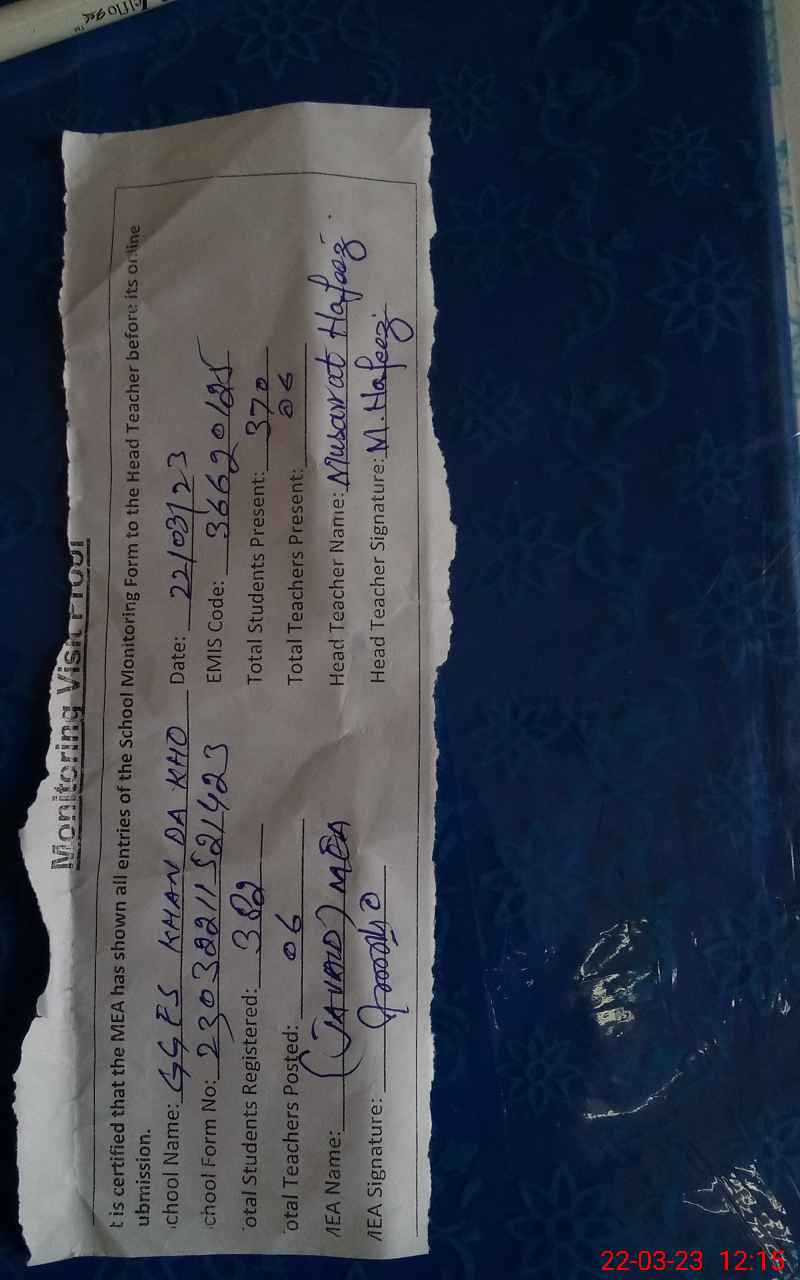 Monitoring Visit Proof
t is certified that the MEA has shown all entries of the School Monitoring Form to the Head Teacher before its online
ubmission.
chool Name: GGES KHAN DA KHO Date: 22/03/23
chool Form No: 23032211521423 EMIS Code: 36620125
otal Students Registered: 382 Total Students Present: 370
otal Teachers Posted: 06 Total Teachers Present: 06
MEA Name: (JAVAID) MEA Head Teacher Name: Musarrat Hafeez
MEA Signature: Head Teacher Signature: M. Hafeez
22-03-23 12:15